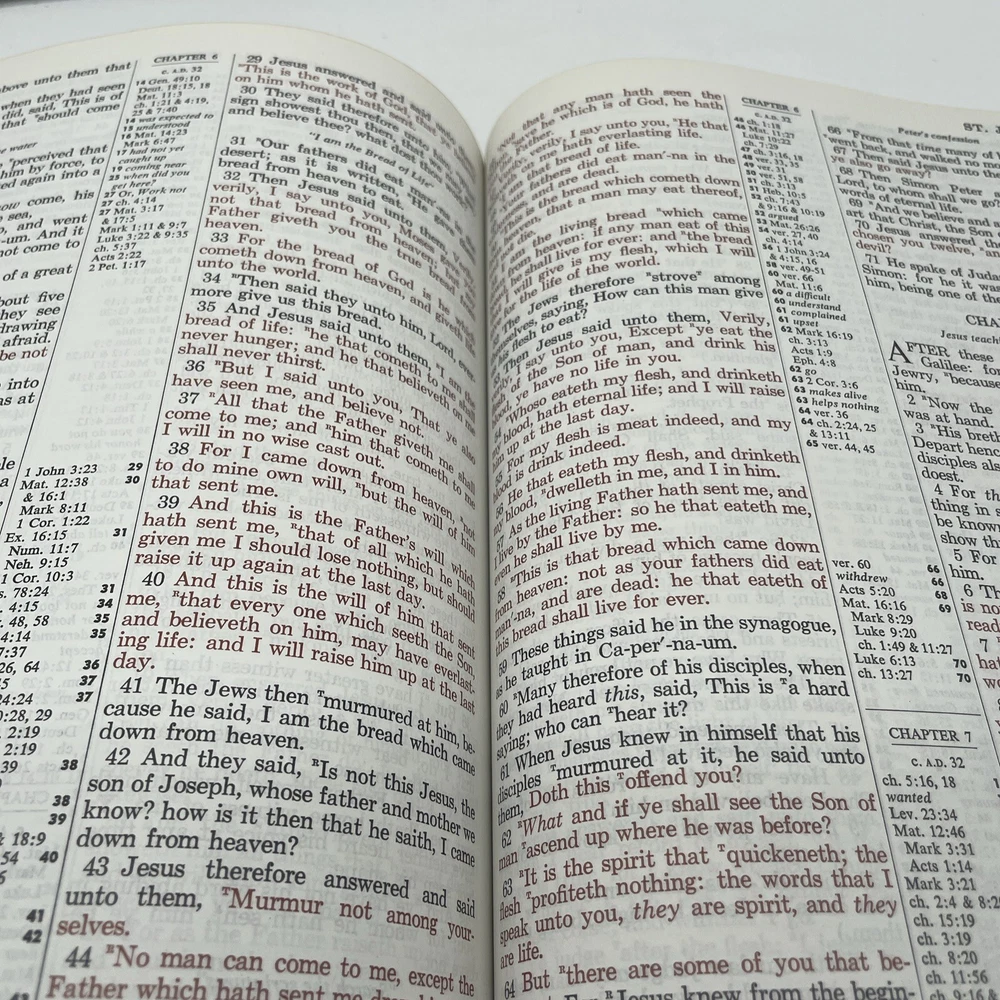 bove unto them that
when they had seen
did, said, This is of
that "should come
"perceived that
him by force, to
ed again into a
come, his
sea,
p, and went
-um. And it
not come to
of a great
bout five
they see
drawing
afraid.
be not
into
as at
1 John 3:23 29
Mat. 12:38 30
& 16:1
Mark 8:11
1 Cor. 1:22
Ex. 16:15 31
Num. 11:7
Neh. 9:15
1 Cor. 10:3
s. 78:24 31
. 4:15 34
. 48, 58 35
4:14 35
7:37
26, 64 36
37
24:24 37
0:28, 29
. 2:19
2:19
39 38
38
39
& 18:9
54 40
41
42
CHAPTER 6
c. A.D. 32
14 Gen. 49:10
Deut. 18:15, 18
Mat. 11:3
ch. 1:21 & 4:19,
25 & 7:40
14 was expected to
15 understood
16 Mat. 14:23
Mark 6:47
17 had not yet
caught up
19 come near
25 when did you
get here?
27 Or, Work not
27 ch. 4:14
27 Mat. 3:17
& 17:5
Mark 1:11 & 9:7
Luke 3:22 & 9:35
ch. 5:37
Acts 2:22
2 Pet. 1:17
29 Jesus answered and said
"This is the work of God,
on him whom he hath sent.
30 They said therefore
sign showest thou then, that
and believe thee? what dost
"I am the Bread of Life"
31 "Our fathers did eat
desert; as it is written, "He
bread from heaven to eat.
32 Then Jesus said unto them,
verily, I say unto you, Moses
not that bread from heaven;
Father giveth you the true bread
heaven.
33 For the bread of God is he
cometh down from heaven, and giveth
unto the world.
34 "Then said they unto him, Lord, ever-
more give us this bread.
35 And Jesus said unto them, "I am the
bread of life: "he that cometh to me shall
never hunger; and he that believeth on me
shall never thirst.
36 "But I said unto you, That ye also
have seen me, and believe not.
37 "All that the Father giveth me shall
come to me; and "him that cometh to me
I will in no wise cast out.
38 For I came down from heaven, not
to do mine own will, "but the will of him
that sent me.
39 And this is the Father's will which
hath sent me, "that of all which he hath
given me I should lose nothing, but should
raise it up again at the last day.
40 And this is the will of him that sent
me, ᴿthat every one which seeth the Son,
and believeth on him, may have everlast-
ing life: and I will raise him up at the last
day.
41 The Jews then ᵀmurmured at him, be-
cause he said, I am the bread which came
down from heaven.
42 And they said, ᴿIs not this Jesus, the
son of Joseph, whose father and mother we
know? how is it then that he saith, I came
down from heaven?
43 Jesus therefore answered and said
unto them, ᵀMurmur not among your-
selves.
44 ᴿNo man can come to me, except the
Father which hath sent me draw him
that any man hath seen the
he which is of God, he hath
I say unto you, "He that
everlasting life.
bread of life.
fathers did eat man'-na in the
and are dead.
is the bread which cometh down
that a man may eat thereof,
the living bread "which came
heaven: if any man eat of this
he shall live for ever: and "the bread
will give is my flesh, which I will
the life of the world.
The Jews therefore "strove" among
saying, How can this man give
his flesh to eat?
Then Jesus said unto them, Verily,
I say unto you, Except "ye eat the
of the Son of man, and drink his
ye have no life in you.
Whoso eateth my flesh, and drinketh
blood, hath eternal life; and I will raise
him up at the last day.
For my flesh is meat indeed, and my
blood is drink indeed.
He that eateth my flesh, and drinketh
my blood, "dwelleth in me, and I in him.
As the living Father hath sent me, and
I live by the Father: so he that eateth me,
even he shall live by me.
58 "This is that bread which came down
from heaven: not as your fathers did eat
man'-na, and are dead: he that eateth of
this bread shall live for ever.
59 These things said he in the synagogue,
as he taught in Ca-per'-na-um.
60 "Many therefore of his disciples, when
they had heard this, said, This is ᵀa hard
saying; who can ᵀhear it?
61 When Jesus knew in himself that his
disciples ᵀmurmured at it, he said unto
them, Doth this ᵀoffend you?
62 ᴿWhat and if ye shall see the Son of
man ᵀascend up where he was before?
63 ᴿIt is the spirit that ᵀquickeneth; the
flesh ᵀprofiteth nothing: the words that I
speak unto you, they are spirit, and they
are life.
64 But ᴿthere are some of you that be-
For ᴿJesus knew from the begin-
CHAPTER 6
c. A.D. 32
46 ch. 1:18
46 Mat. 11:27
Luke 10:22
ch. 7:29
47 ch. 3:16, 18
48 ver. 33, 35
49 ver. 31
50 ver. 51, 58
51 ch. 3:13
51 Heb. 10:5
52 ch. 7:43
& 9:16 & 10:19
52 argued
53 Mat. 26:26
54 ver. 27, 40
ch. 4:14
56 1 John 3:24
& 4:15, 16
58 ver. 49-51
60 ver. 66
Mat. 11:6
60 a difficult
60 understand
61 complained
61 upset
62 Mark 16:19
ch. 3:13
Acts 1:9
Eph. 4:8
62 go
63 2 Cor. 3:6
63 makes alive
63 helps nothing
64 ver. 36
64 ch. 2:24, 25
& 13:11
65 ver. 44, 45
ver. 60 66
withdrew 66
Acts 5:20 68
Mat. 16:16 69
Mark 8:29
Luke 9:20
ch. 1:49 & 11:27
Luke 6:13 70
ch. 13:27 70
CHAPTER 7
c. A.D. 32
ch. 5:16, 18
wanted
Lev. 23:34
Mat. 12:46
Mark 3:31
Acts 1:14
Mark 3:21
ch. 2:4 & 8:20
ch. 15:19
ch. 3:19
ch. 8:20
ch. 11:56
Peter's confession
ST. J
66 "From that time many of
went back, and walked no
67 Then said Jesus unto the
ye also go away?
68 Then Simon Peter
Lord, to whom shall we go?
words of eternal life.
69 "And we believe and
art that Christ, the Son
70 Jesus answered them,
chosen you twelve, and
devil?
71 He spake of Judas
Simon: for he it was
him, being one of the
CHA
Jesus teach
AFTER these
Galilee: for
Jewry, "because
him.
2 "Now the
was at hand.
3 "His breth
Depart hence
disciples also
doest.
4 For th
thing in s
be known
show thy
5 For
him.
6 Th
is no
read
7
hat